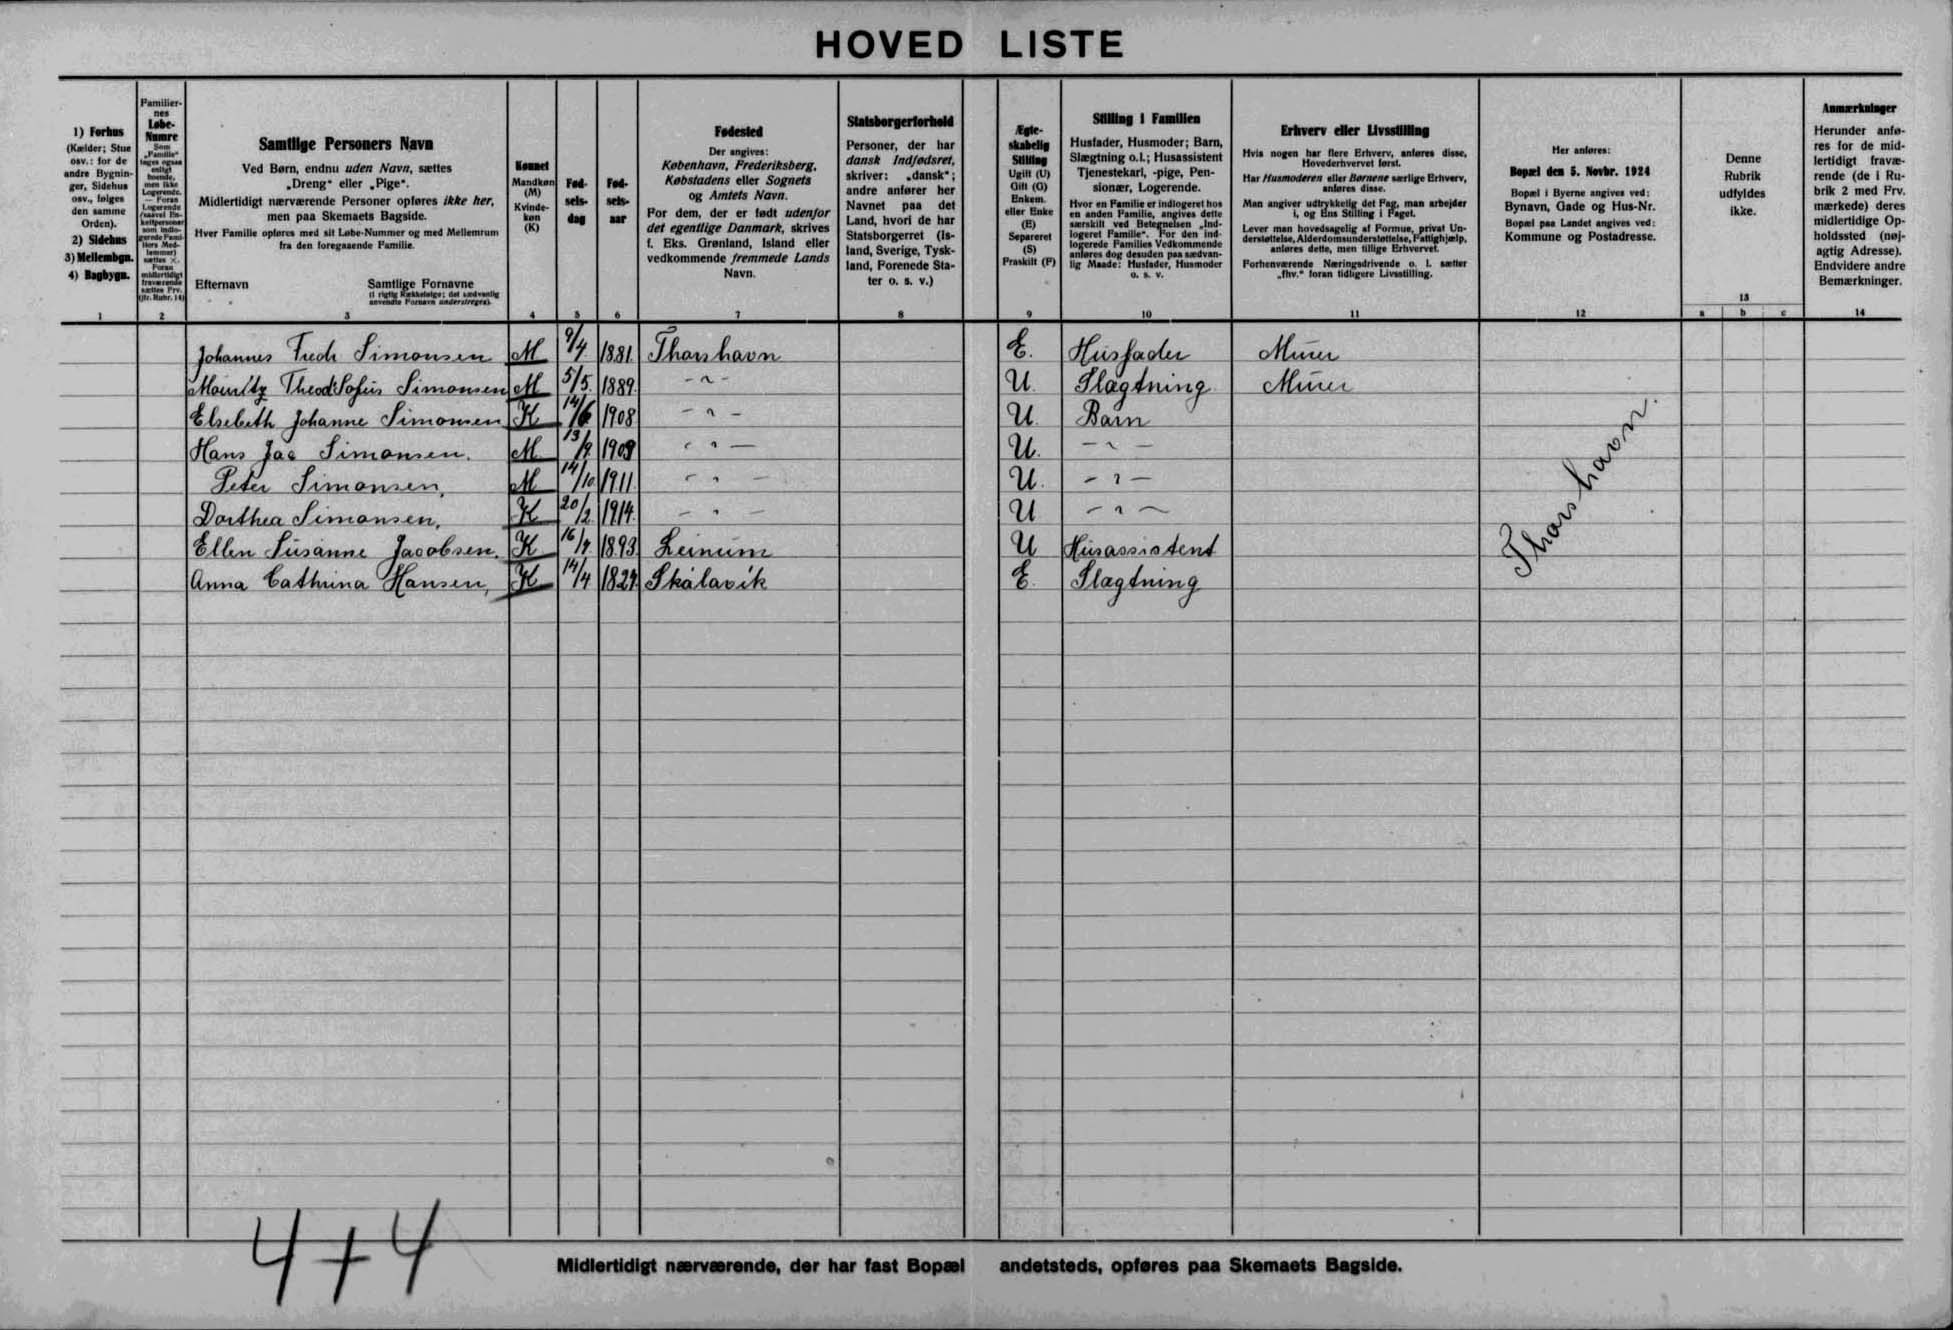 HOVED LISTE
1) Forhus
(Kælder; Stue
osv.: for de
andre Bygnin-
ger, Sidehus
osv., følges
den samme
Orden).
2) Sidehus
3) Mellembgn.
4) Bagbygn.
1
Familier-
nes
Løbe-
Numre
2
Samtlige Personers Navn
Ved Børn, endnu uden Navn, sættes
„Dreng“ eller „Pige“.
Midlertidigt nærværende Personer opføres ikke her,
men paa Skemaets Bagside.
Hver Familie opføres med sit Løbe-Nummer og med Mellemrum
fra den foregaaende Familie.
Efternavn Samtlige Fornavne
(i rigtig Rækkefølge; det sædvanlig
anvendte Fornavn understreges).
3
Kønnet
Mandkøn
(M)
Kvinde-
køn
(K)
4
Fød-
sels-
dag
5
Fød-
sels-
aar
6
Fødested
Der angives:
København, Frederiksberg,
Købstadens eller Sognets
og Amtets Navn.
For dem, der er født udenfor
det egentlige Danmark, skrives
f. Eks. Grønland, Island eller
vedkommende fremmede Lands
Navn.
7
Statsborgerforhold
Personer, der har
dansk Indfødsret,
skriver: „dansk“;
andre anfører her
Navnet paa det
Land, hvori de har
Statsborgerret (Is-
land, Sverige, Tysk-
land, Forenede Sta-
ter o. s. v.)
8
Ægte-
skabelig
Stilling
Ugift (U)
Gift (G)
Enkem.
eller Enke
(E)
Separeret
(S)
Fraskilt (F)
9
Stilling i Familien
Husfader, Husmoder; Barn,
Slægtning o.l.; Husassistent
Tjenestekarl, -pige, Pen-
sionær, Logerende.
Hvor en Familie er indlogeret hos
en anden Familie, angives dette
særskilt ved Betegnelsen „Ind-
logeret Familie“. For den ind-
logerede Families Vedkommende
anføres dog desuden paa sædvan-
lig Maade: Husfader, Husmoder
o. s. v.
10
Erhverv eller Livsstilling
Hvis nogen har flere Erhverv, anføres disse,
Hovederhvervet først.
Har Husmoderen eller Børnene særlige Erhverv,
anføres disse.
Man angiver udtrykkelig det Fag, man arbejder
i, og Ens Stilling i Faget.
Lever man hovedsagelig af Formue, privat Un-
derstøttelse, Alderdomsunderstøttelse, Fattighjælp,
anføres dette, men tillige Erhvervet.
Forhenværende Næringsdrivende o. l. sætter
„fhv.“ foran tidligere Livsstilling.
11
Her anføres:
Bopæl den 5. Novbr. 1924
Bopæl i Byerne angives ved:
Bynavn, Gade og Hus-Nr.
Bopæl paa Landet angives ved:
Kommune og Postadresse.
12
Denne
Rubrik
udfyldes
ikke.
13
a b c
Anmærkninger
Herunder anfø-
res for de mid-
lertidigt fravæ-
rende (de i Ru-
brik 2 med Frv.
mærkede) deres
midlertidige Op-
holdssted (nøj-
agtig Adresse).
Endvidere andre
Bemærkninger.
14
Johannes Fredr Simonsen M 9/4 1881. Thorshavn E. Husfader Murer
Mouritz Theod Sofus Simonsen M 5/5. 1889. - " - U. Slægtning Murer
Elsebeth Johanne Simonsen K 14/6 1908 - " - U. Barn
Hans Jac Simonsen. M 13/9. 1909 - " - U. - " -
Peter Simonsen, M 14/10. 1911. - " - U. - " -
Dorthea Simonsen, K 20/2. 1914. - " - U - " -
Ellen Susanne Jacobsen. K 16/4. 1893. Leinum U Husassistent
Anna Cathrina Hansen, K 14/4 Skálavík E. Slægtning
Thorshavn.
4+4
Midlertidigt nærværende, der har fast Bopæl andetsteds, opføres paa Skemaets Bagside.